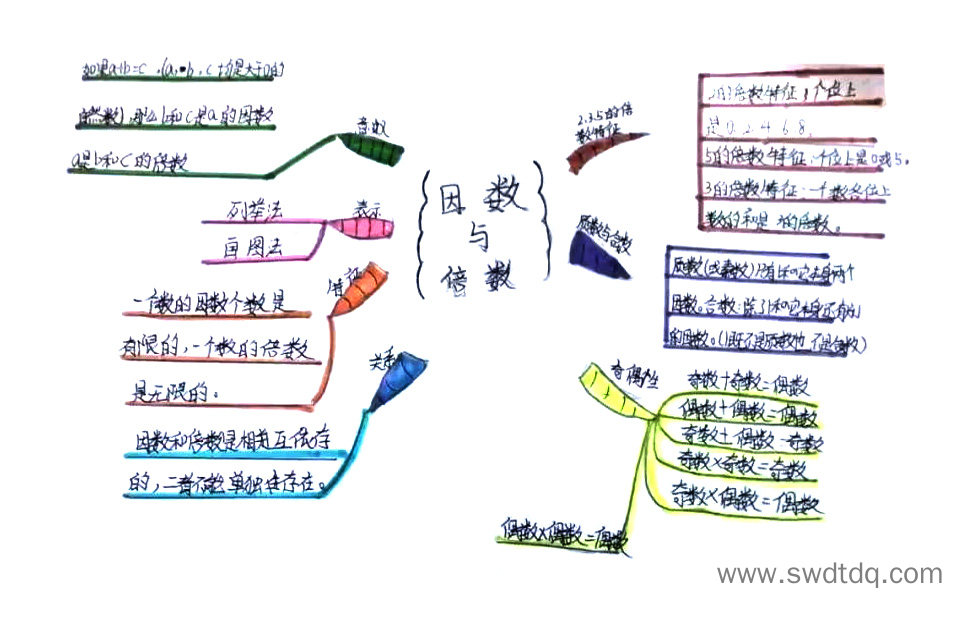 因数
与
倍数
意义
如果a÷b=c,(a,b,c均是大于0的
自然数),那么b和c是a的因数
a是b和c的倍数
表示
列举法
画图法
特征
一个数的因数个数是
有限的,一个数的倍数
是无限的。
关系
因数和倍数是相互依存
的,二者不能单独存在。
2.3.5的倍
数特征
2的倍数特征:个位上
是0.2.4.6.8.
5的倍数特征:个位上是0或5。
3的倍数特征:一个数各位上
数的和是3的倍数。
质数与合数
质数(或素数)只有1和它本身两个
因数。合数:除了1和它本身还有别
的因数。(1既不是质数也不是合数)
奇偶性
奇数+奇数=偶数
偶数+偶数=偶数
奇数+偶数=奇数
奇数×奇数=奇数
奇数×偶数=偶数
偶数×偶数=偶数
www.swdtdq.com